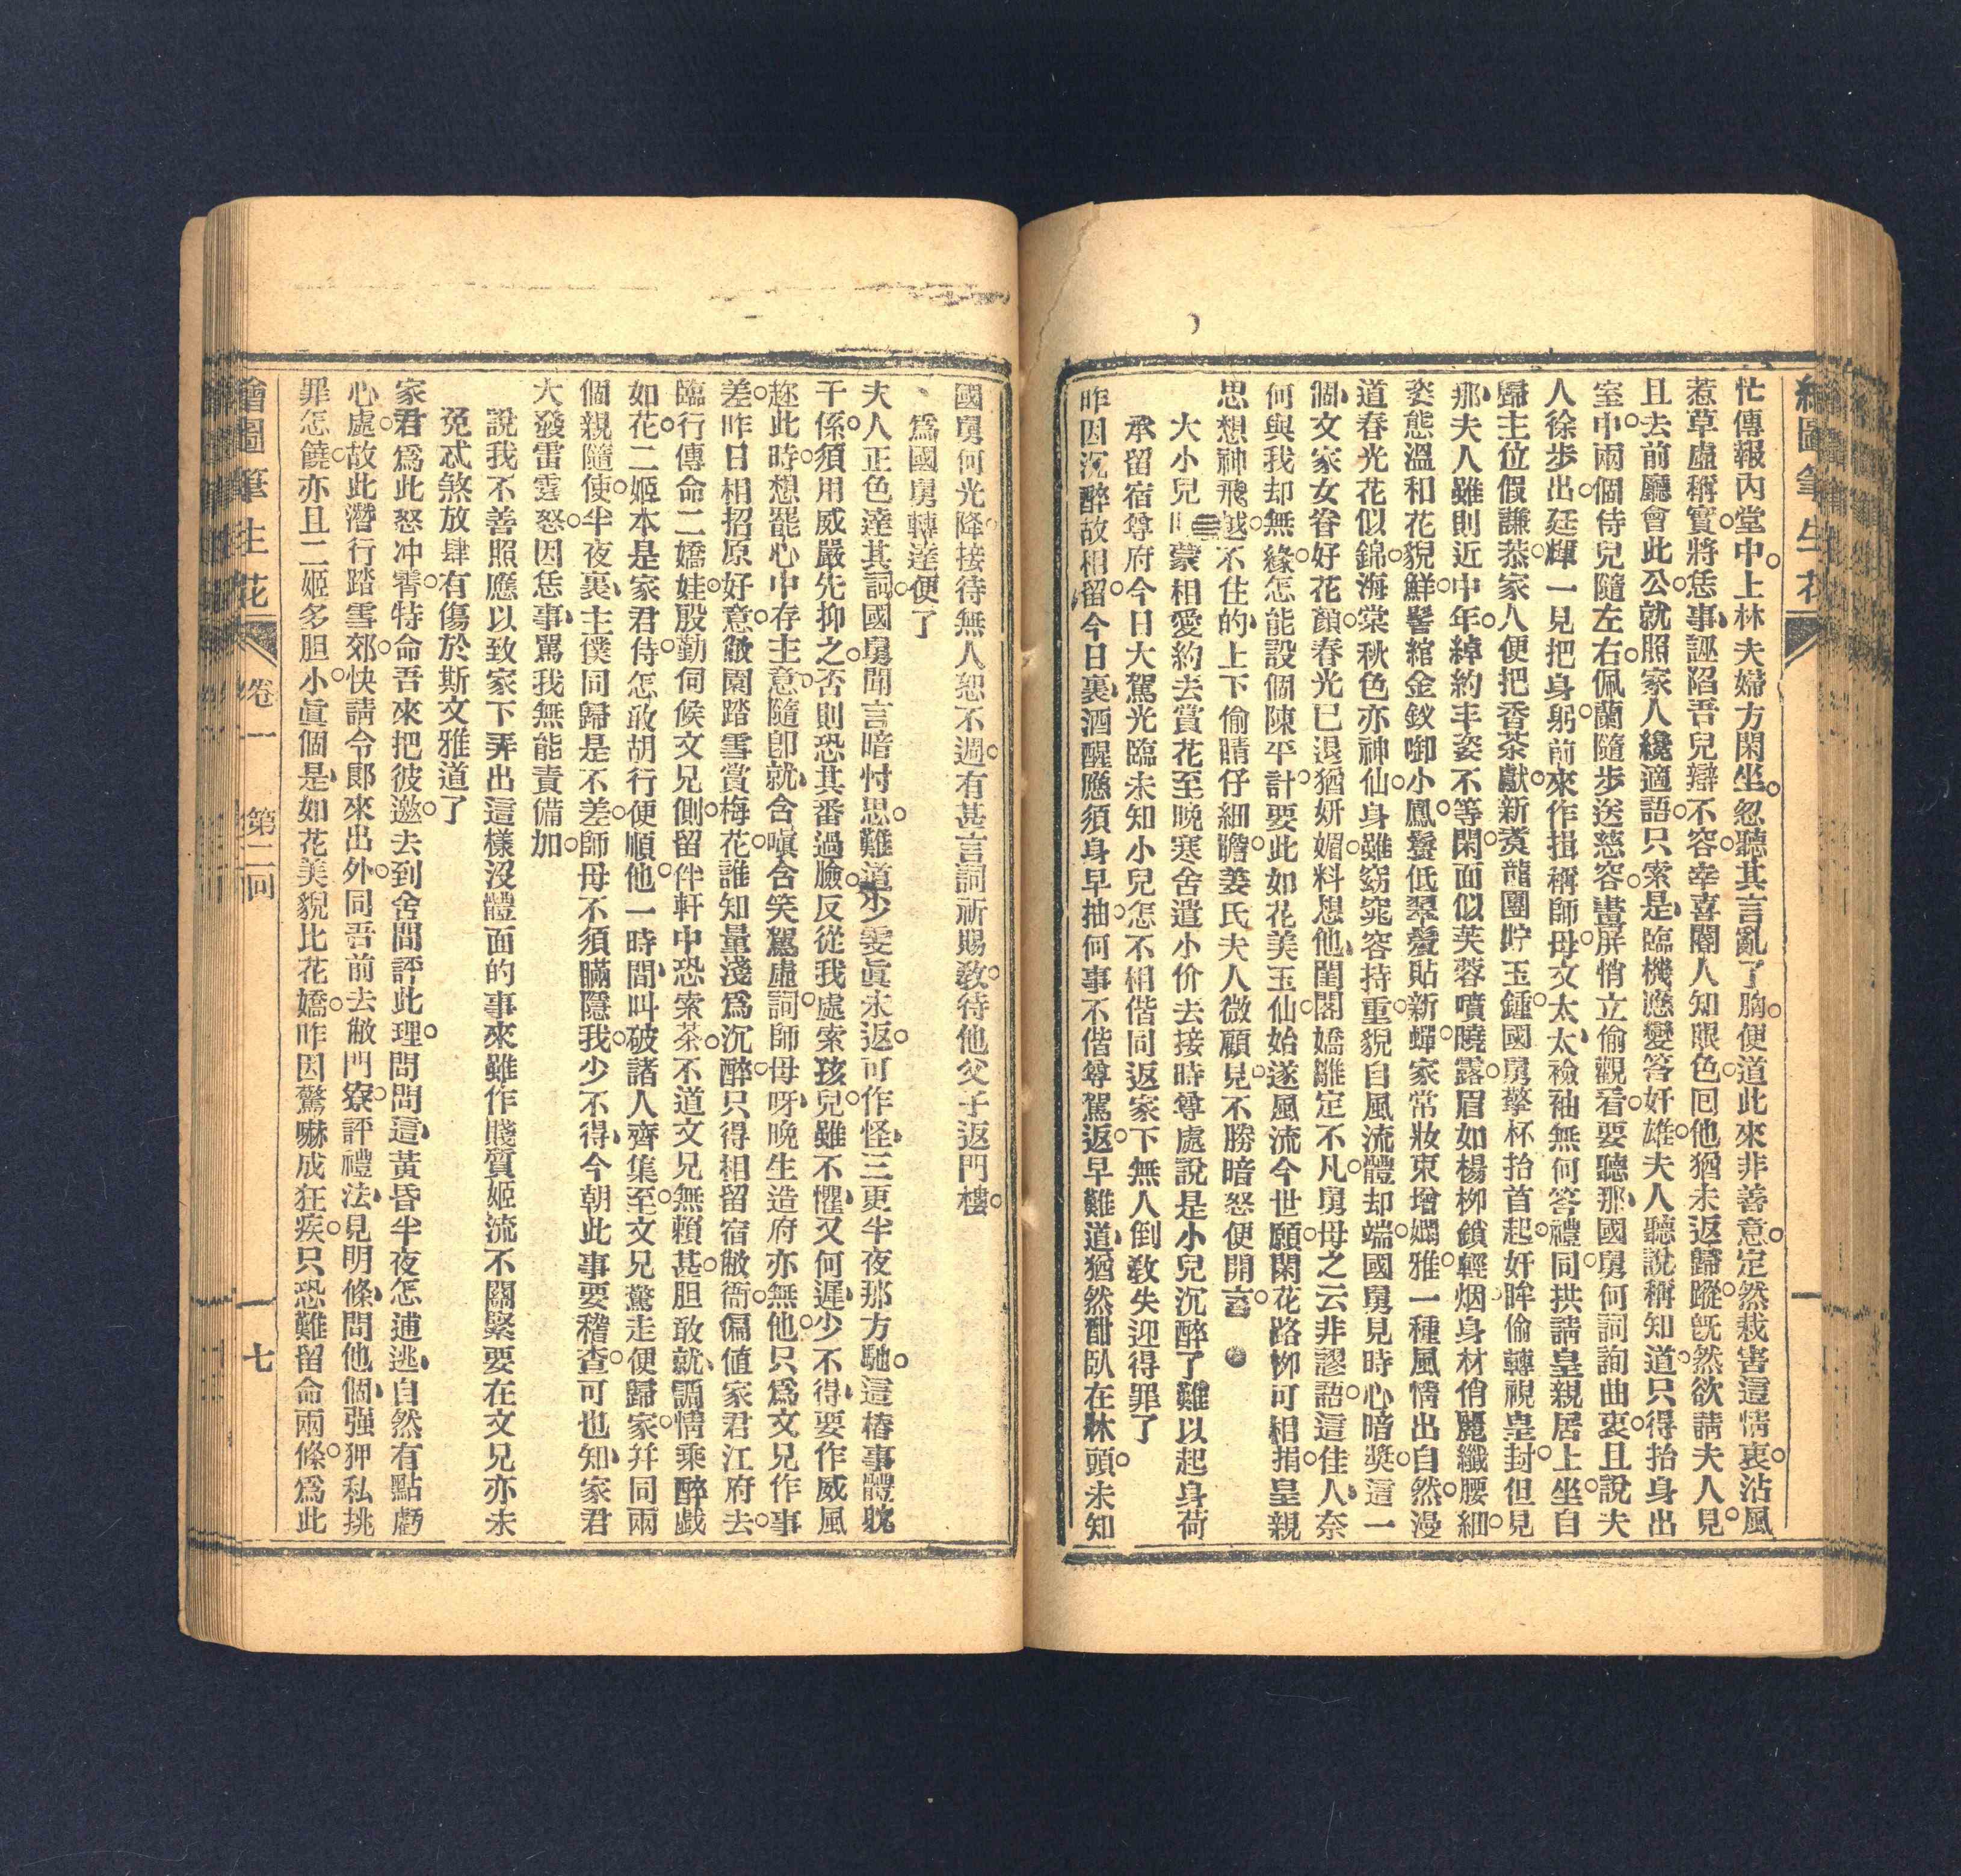 繪圖筆生花
忙傳報內堂中上林夫婦方閑坐忽聽其言亂了胸便道此來非善意定然栽害這情衷沾風
惹草虛稱實將恁事誣陷吾兒辯不容幸喜閽人知眼色回他猶未返歸蹤旣然欲請夫人見
且去前廳會此公就照家人纔適語只索是臨機應變答奸雄夫人聽說稱知道只得抬身出
室中兩個侍兒隨左右佩蘭隨步送慈容畫屏悄立偷觀看要聽那國舅何詞詢曲衷且說夫
人徐步出廷輝一見把身躬前來作揖稱師母文太太襝袖無何答禮同拱請皇親居上坐自
歸主位假謙恭家人便把香茶獻新煑龍團貯玉鍾國舅擎杯抬首起奸眸偷轉視皇封但見
那夫人雖則近中年綽約丰姿不等閑面似芙蓉噴曉露眉如楊柳鎖輕烟身材俏麗纖腰細
姿態溫和花貌鮮髻綰金釵啣小鳳鬢低翠鬟貼新蟬家常妝束增嫻雅一種風情出自然漫
道春光花似錦海棠秋色亦神仙身雖窈窕容持重貌自風流體却端國舅見時心暗奬這一
個文家女眷好花顏春光已退猶妍媚料想他閨閣嬌雛定不凡舅母之云非謬語這佳人奈
何與我却無緣怎能設個陳平計要此如花美玉仙始遂風流今世願閑花路柳可相捐皇親
思想神飛越不住的上下偷睛仔細瞻姜氏夫人微顧見不勝暗怒便開言
大小兒蒙相愛約去賞花至晚寒舍遣小价去接時尊處說是小兒沉醉了難以起身荷
承留宿尊府今日大駕光臨未知小兒怎不相偕同返家下無人倒敎失迎得罪了
昨因沉醉故相留今日裏酒醒應須身早抽何事不偕尊駕返早難道猶然酣臥在牀頭未知
國舅何光降接待無人恕不週有甚言詞祈賜敎待他父子返門樓
爲國舅轉達便了
夫人正色達其詞國舅聞言暗忖思難道少雯眞未返可作怪三更半夜那方馳這樁事體躭
干係須用威嚴先抑之否則恐其番過臉反從我處索孩兒雖不懼又何遲少不得要作威風
趂此時想罷心中存主意隨卽就含嗔含笑駕虛詞師母呀晚生造府亦無他只爲文兄作事
差昨日相招原好意敝園踏雪賞梅花誰知量淺爲沉醉只得相留宿敝衙偏值家君江府去
臨行傳命二嬌娃殷勤伺候文兄側留伴軒中恐索茶不道文兄無賴甚胆敢就調情乘醉戲
如花二姬本是家君侍怎敢胡行便順他一時間叫破諸人齊集至文兄驚走便歸家幷同兩
個親隨使半夜裏主僕同歸是不差師母不須瞞隱我少不得今朝此事要稽查可也知家君
大發雷霆怒因恁事罵我無能責備加
說我不善照應以致家下弄出這樣沒體面的事來雖作賤質姬流不關緊要在文兄亦未
免忒煞放肆有傷於斯文雅道了
家君爲此怒冲霄特命吾來把彼邀去到舍間評此理問問這黃昏半夜怎逋逃自然有點虧
心處故此潛行踏雪郊快請令郎來出外同吾前去敝門寮評禮法見明條問他個强狎私挑
罪怎饒亦且二姬多胆小眞個是如花美貌比花嬌昨因驚嚇成狂疾只恐難留命兩條爲此
繪圖筆生花 卷一 第二回 七